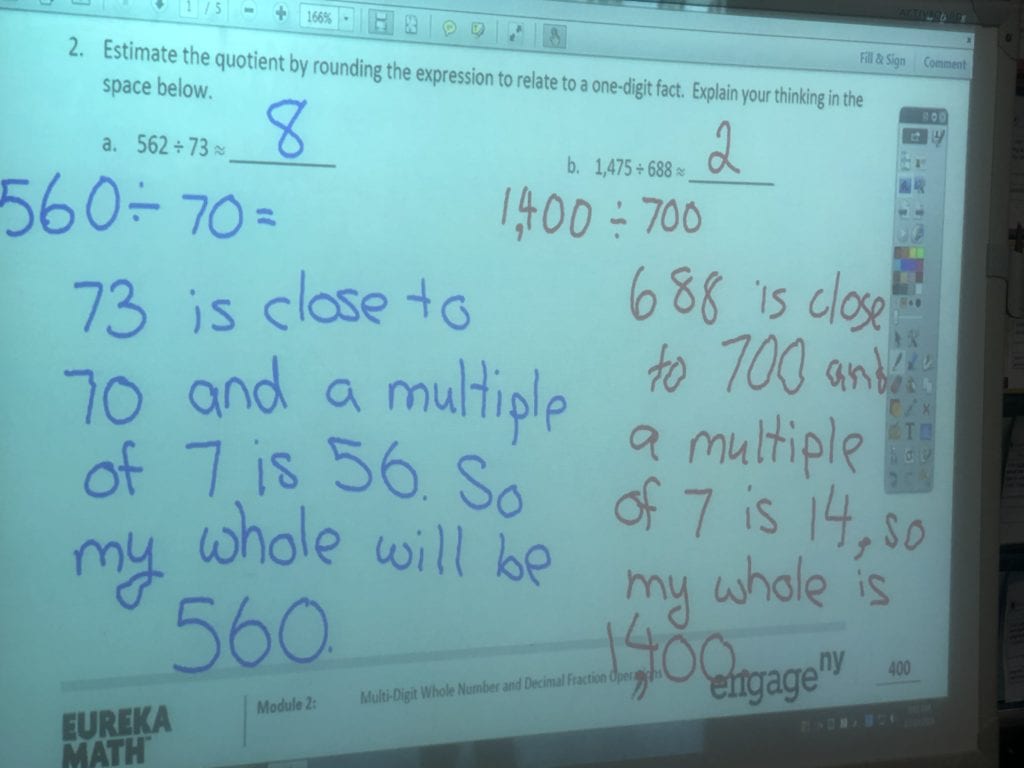 1 / 5
166%
Fill & Sign
Comment
2. Estimate the quotient by rounding the expression to relate to a one-digit fact. Explain your thinking in the
space below.
a. 562 ÷ 73 ≈ 8
560 ÷ 70 =
73 is close to
70 and a multiple
of 7 is 56. So
my whole will be
560.
b. 1,475 ÷ 688 ≈ 2
1,400 ÷ 700
688 is close
to 700 and
a multiple
of 7 is 14, so
my whole is
1,400.
EUREKA
MATH™
Module 2:
Multi-Digit Whole Number and Decimal Fraction Operations
engageny
400